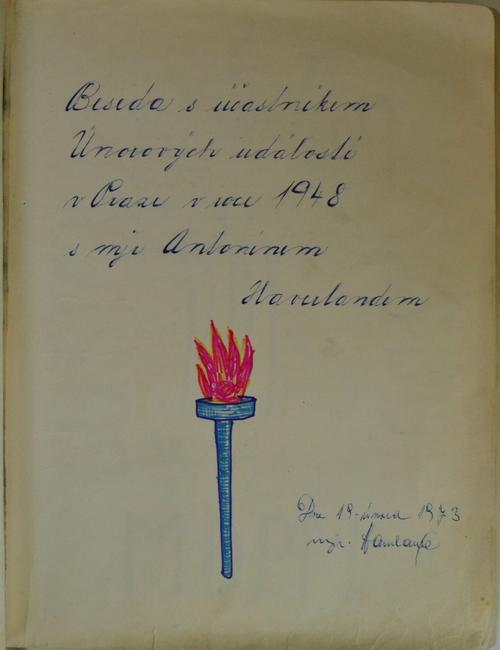 Beseda s účastníkem
Únorových událostí
v Praze v roce 1948
s mjr Antonínem
Havurlandem
Dne 19. února 1973
mjr.